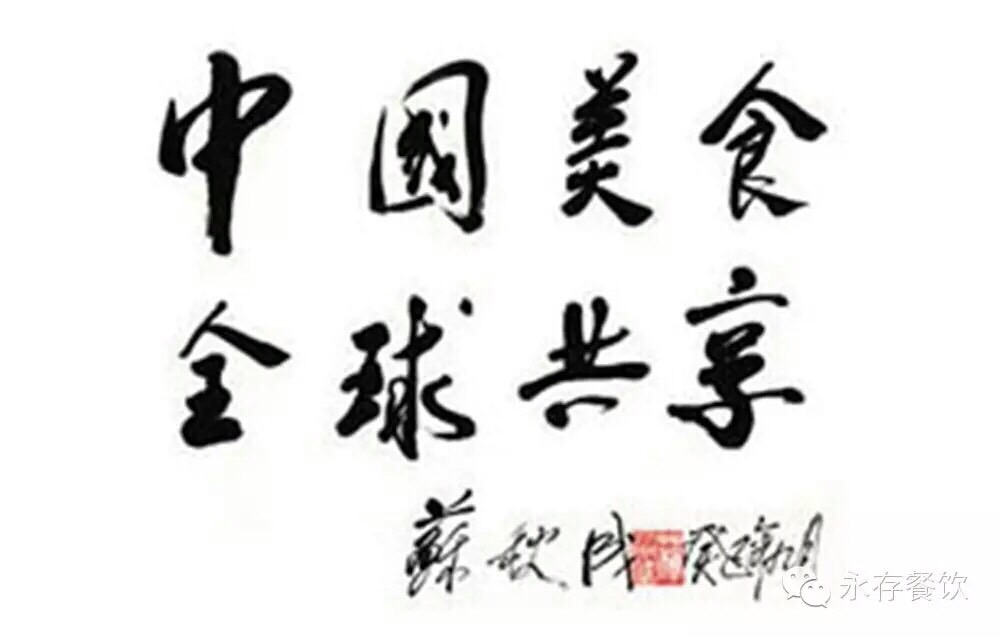 中國美食
全球共享
蘇秋成
永存餐饮